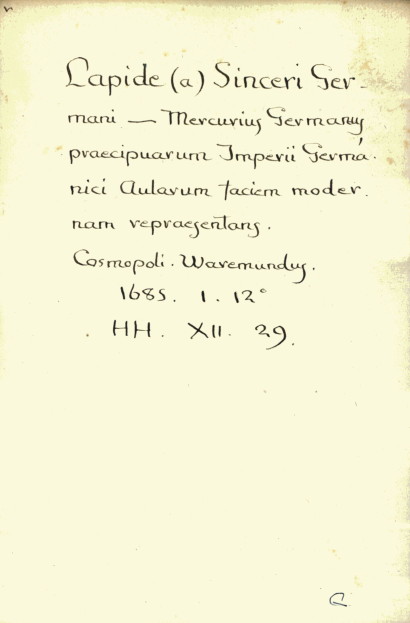 Lapide (a) Sinceri Ger-
mani — Mercurius Germanus
praecipuarum Imperii Germá-
nici Aularum faciem moder-
nam repraesentans.
Cosmopoli. Waremundus.
1685. 1. 12°
HH. XII. 29.